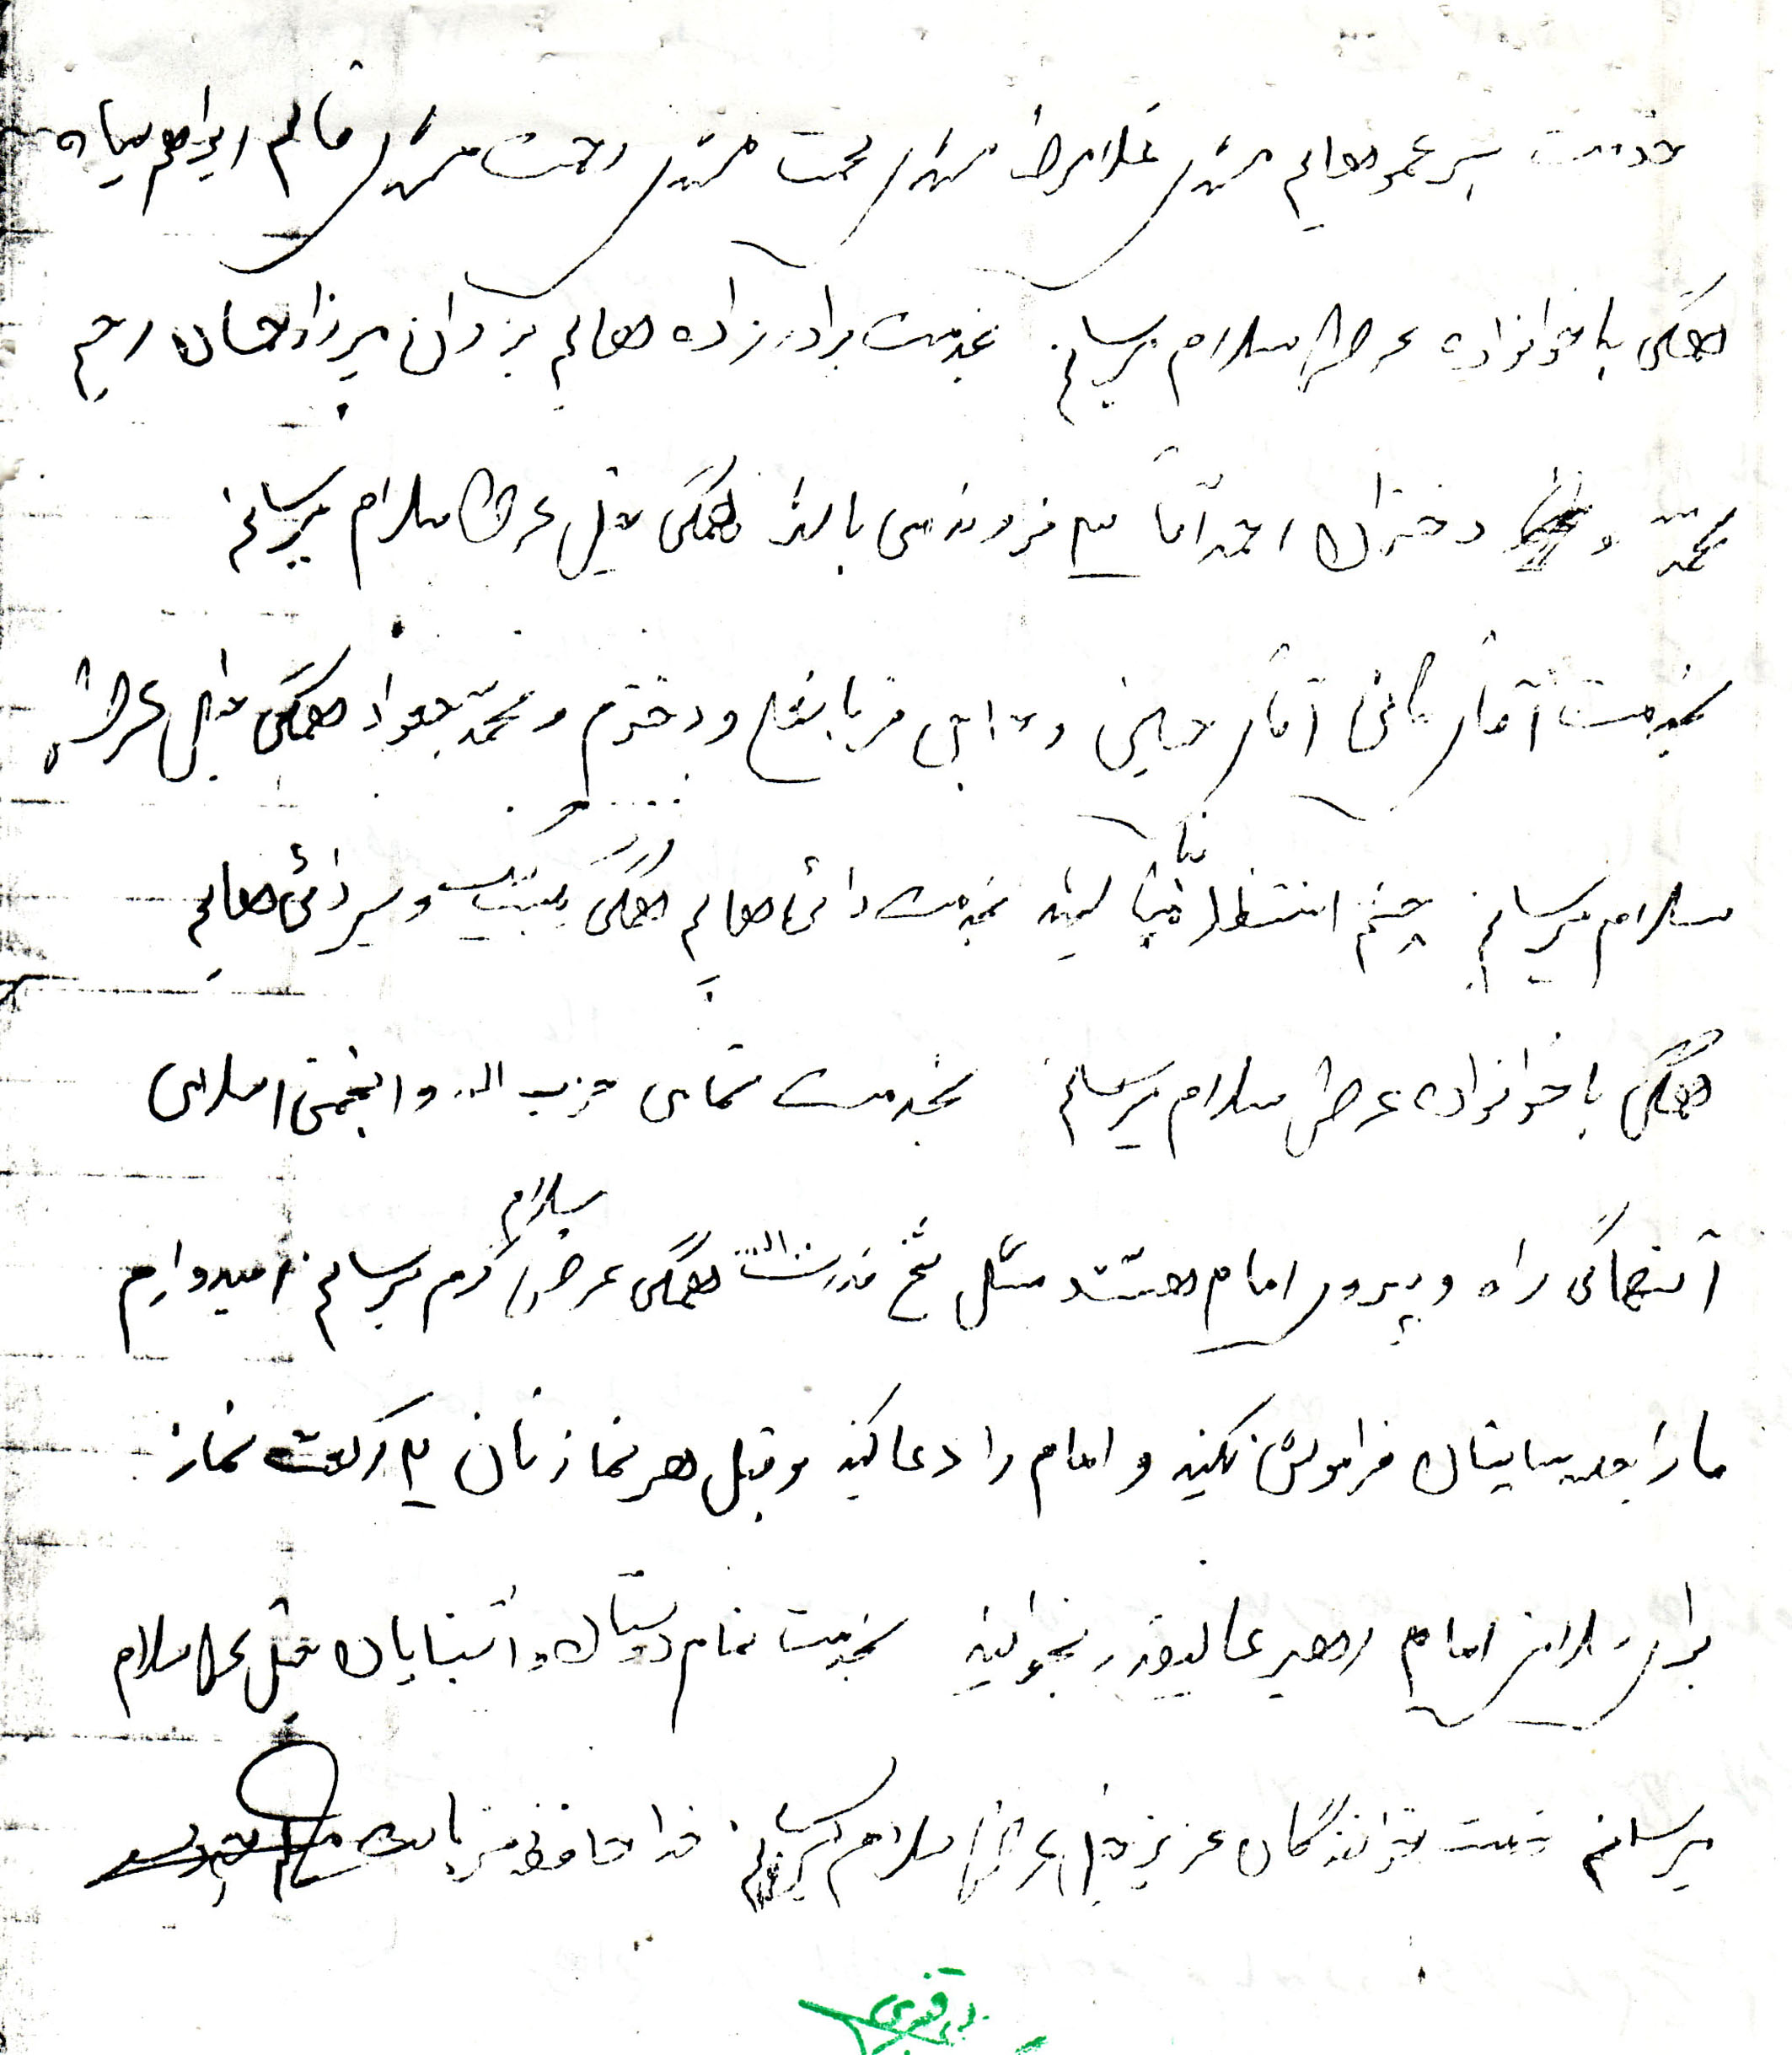 خدمت پسر عموهایم مشهدی غلامرضا مشهدی محبت مشهدی رحمت مشهدی قائم ابراهیم سیاه
همگی باخوانواده عرض سلام میرسانم بخدمت برادرزاده هایم یزدان میرزا رحمان رحیم
محمد و دختران احمد آقا فرزندمی باشد همگی قبل عرض سلام میرسانم
بخدمت آقای آقای حسینی و دختم و محمد جعواد همگی عرض
سلام میرسانم چشم انتظار نباشید بخدمت دائی هایم همگی و پسر دائی هایم
همگی باخوانواده عرض سلام میرسانم بخدمت تمامی حزب الله و انجمن اسلامی
آنهاکی راه و پیروی امام هستند مثل شیخ قدرت الله همگی عرض سلام گرم میرسانم امیدوارم
مارا فراموش نکنید و امام را دعا کنید و قبل هر نمازتان ۲ رکعت نماز
برای سلامتی امام رهبر عالیقدر بخوانید بخدمت تمام دوستان و آشنایان قبل عرض سلام
میرسانم خدمت خوانندگان عزیز عرض سلام میرسانم خدا حافظ